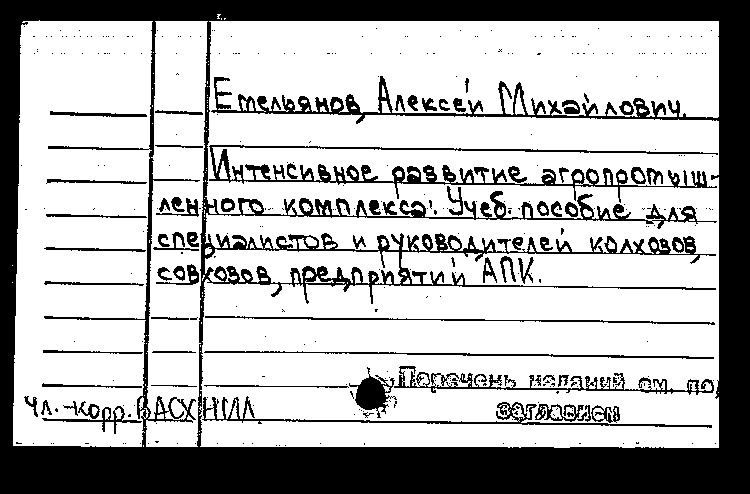 Емельянов, Алексей Михайлович.
Интенсивное развитие агропромыш-
ленного комплекса: Учеб. пособие для
специалистов и руководителей колхозов,
совхозов, предприятий АПК.
Перечень изданий см. под
заглавием
Чл.-корр. ВАСХНИЛ.